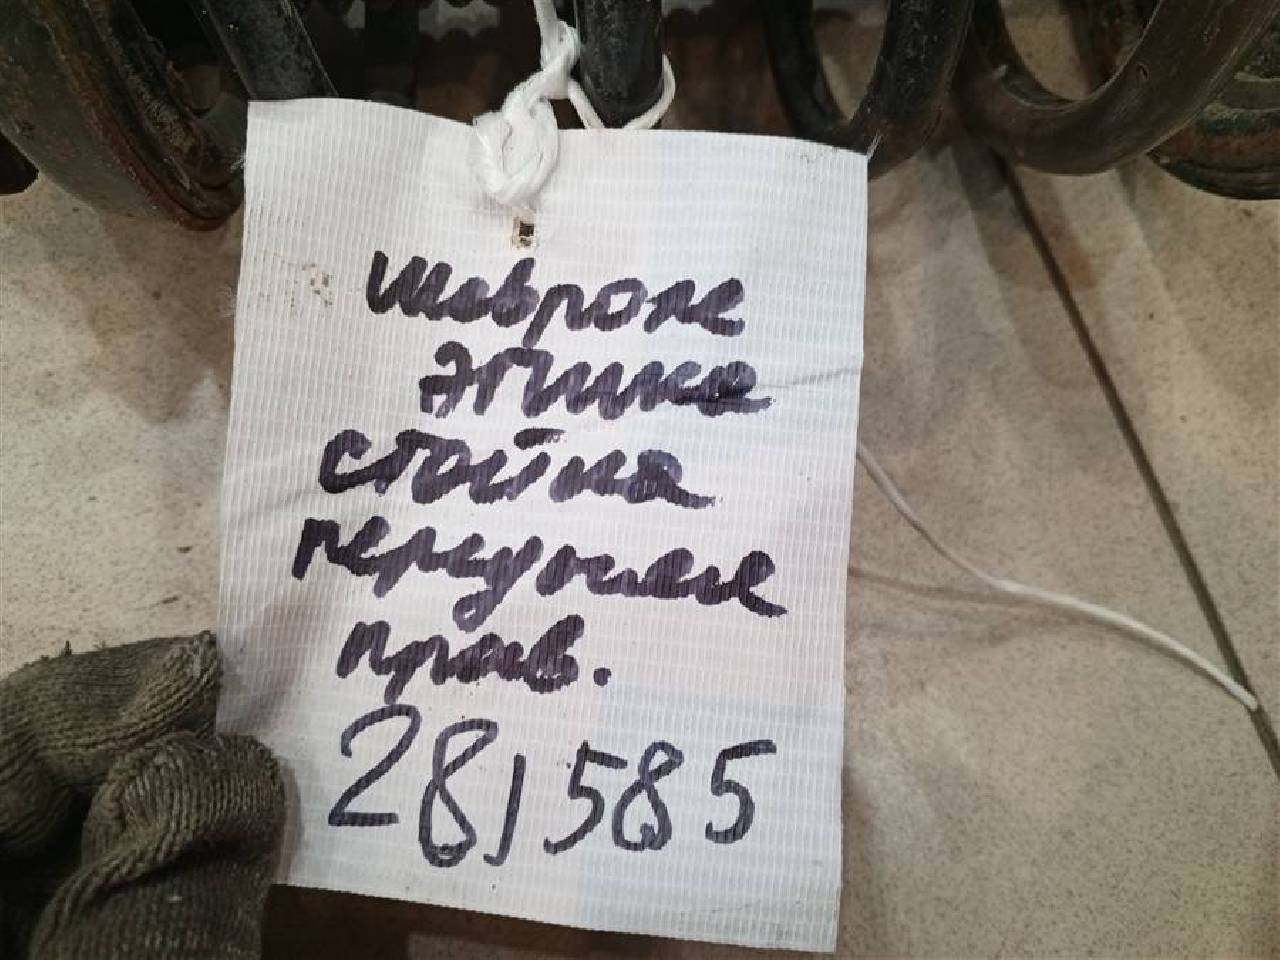 Шевроле
эпика
стойка
передняя
прав.
28,585